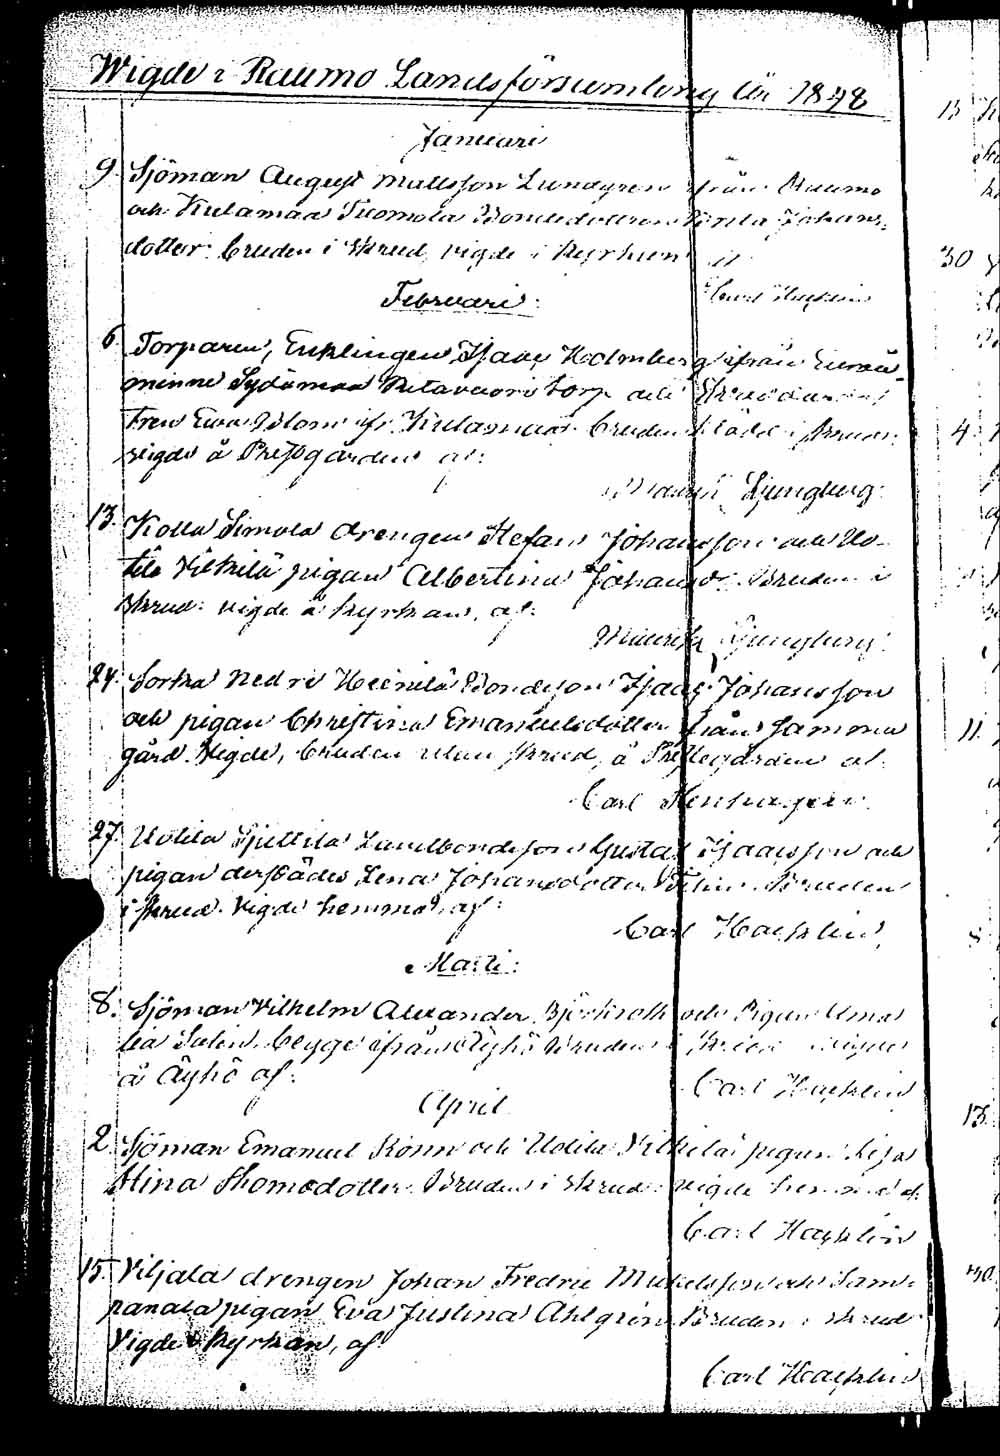 Wigde i Raumo Landsförsamling år 1848
Januari
9. Sjöman August Mattsson Lundgren från Raumo
och Kulamaa Tuomola Bondedottren Johans
dotter. bruden i skrud, vigde i kyrkan af
Carl Hacklin
Februari.
6. Torparen, Enklingen, Isaac Holmberg ifrån Euraå
minne Sydänmaa torp och
Eva Blom ifr. Kulamaa. bruden klädd i skrud.
vigde å Prestgården af:
Ljungberg.
13. Kolla Simola drengen Stefan Johansson och Uo-
tila Vilkilä pigan Albertina Johansd. Bruden i
skrud. vigde i kyrkan, af:
Maurits Ljungberg.
24. Sorka Nedre Heinilä Bondeson Isaac Johansson
och pigan Christina Emanuelsdotter från samma
gård. Vigde, bruden utan skrud, å Prestegården af.
Carl Stenhagen.
27. Uotila Sjuttila Landbondeson Gustaf Isaacsson och
pigan derstädes Lena Johansdotter Bruden
i skrud. Vigde hemma, af:
Carl Hacklin,
Marti:
8. Sjöman Vilhelm Alexander Björkroth och Pigan Ama
lia Salin, begge ifrån Äyhö Bruden i skrud vigde
å Äyhö af:
Carl Hacklin
April
2. Sjöman Emanuel Rönn och Uotila Vilkilä pigan Lisa
Stina Thomædotter. Bruden i skrud: vigde hemma af:
Carl Hacklin
15. Viljala drengen Johan Fredric Mickelsson och Sam-
panala pigan Eva Justina Ahlgren Bruden i skrud
Vigde i kyrkan, af
Carl Hacklin
13
30
4
11.
8
13.
30.